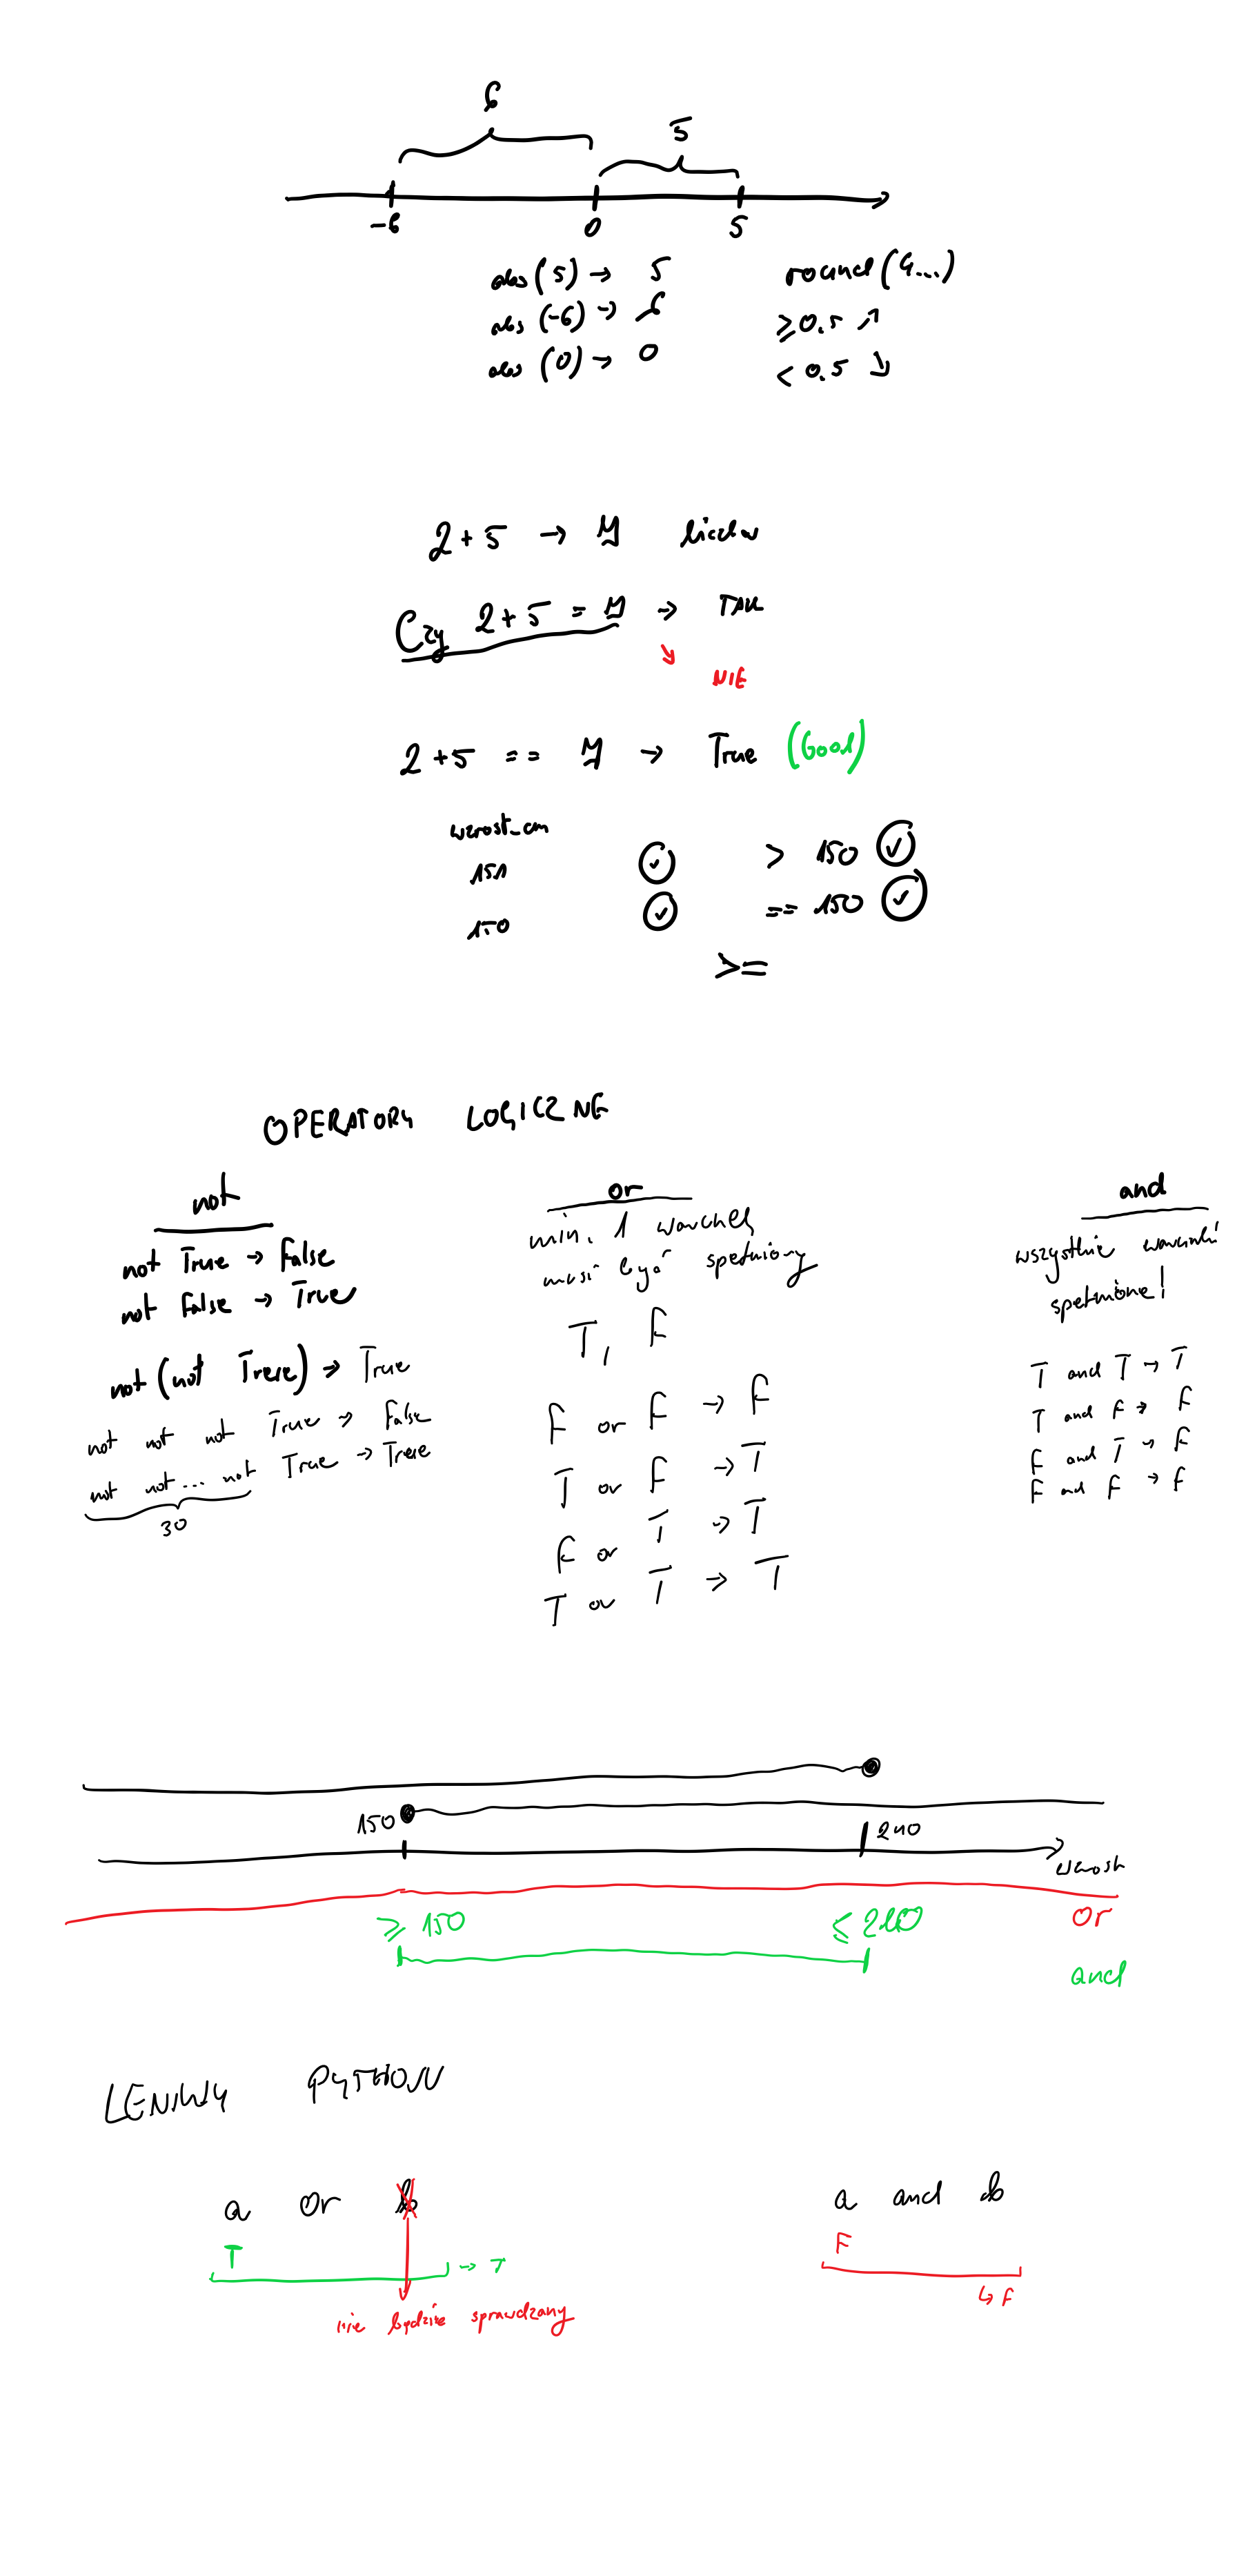 6
5
-6 0 5
abs (5) → 5
abs (-6) → 6
abs (0) → 0
round (4...)
≥0.5 ↗
< 0.5 ↘
2+5 → 7 liczba
Czy 2+5 = 7 → TAK
↘ NIE
2+5 == 7 → True (bool)
wzrost_cm
151 ✓ > 150 ✓
150 ✓ == 150 ✓
>=
OPERATORY LOGICZNE
not
not True → False
not False → True
not (not True) → True
not not not True → False
not not... not True → True
30
or
min. 1 warunek
musi być spełniony
T, F
F or F → F
T or F → T
F or T → T
T or T → T
and
wszystkie warunki
spełnione!
T and T → T
T and F → F
F and T → F
F and F → F
150 210
wzrost
≥ 150 ≤ 210 or
and
LENIWY PYTHON
a or b
T → T
nie będzie sprawdzany
a and b
F
↳ F